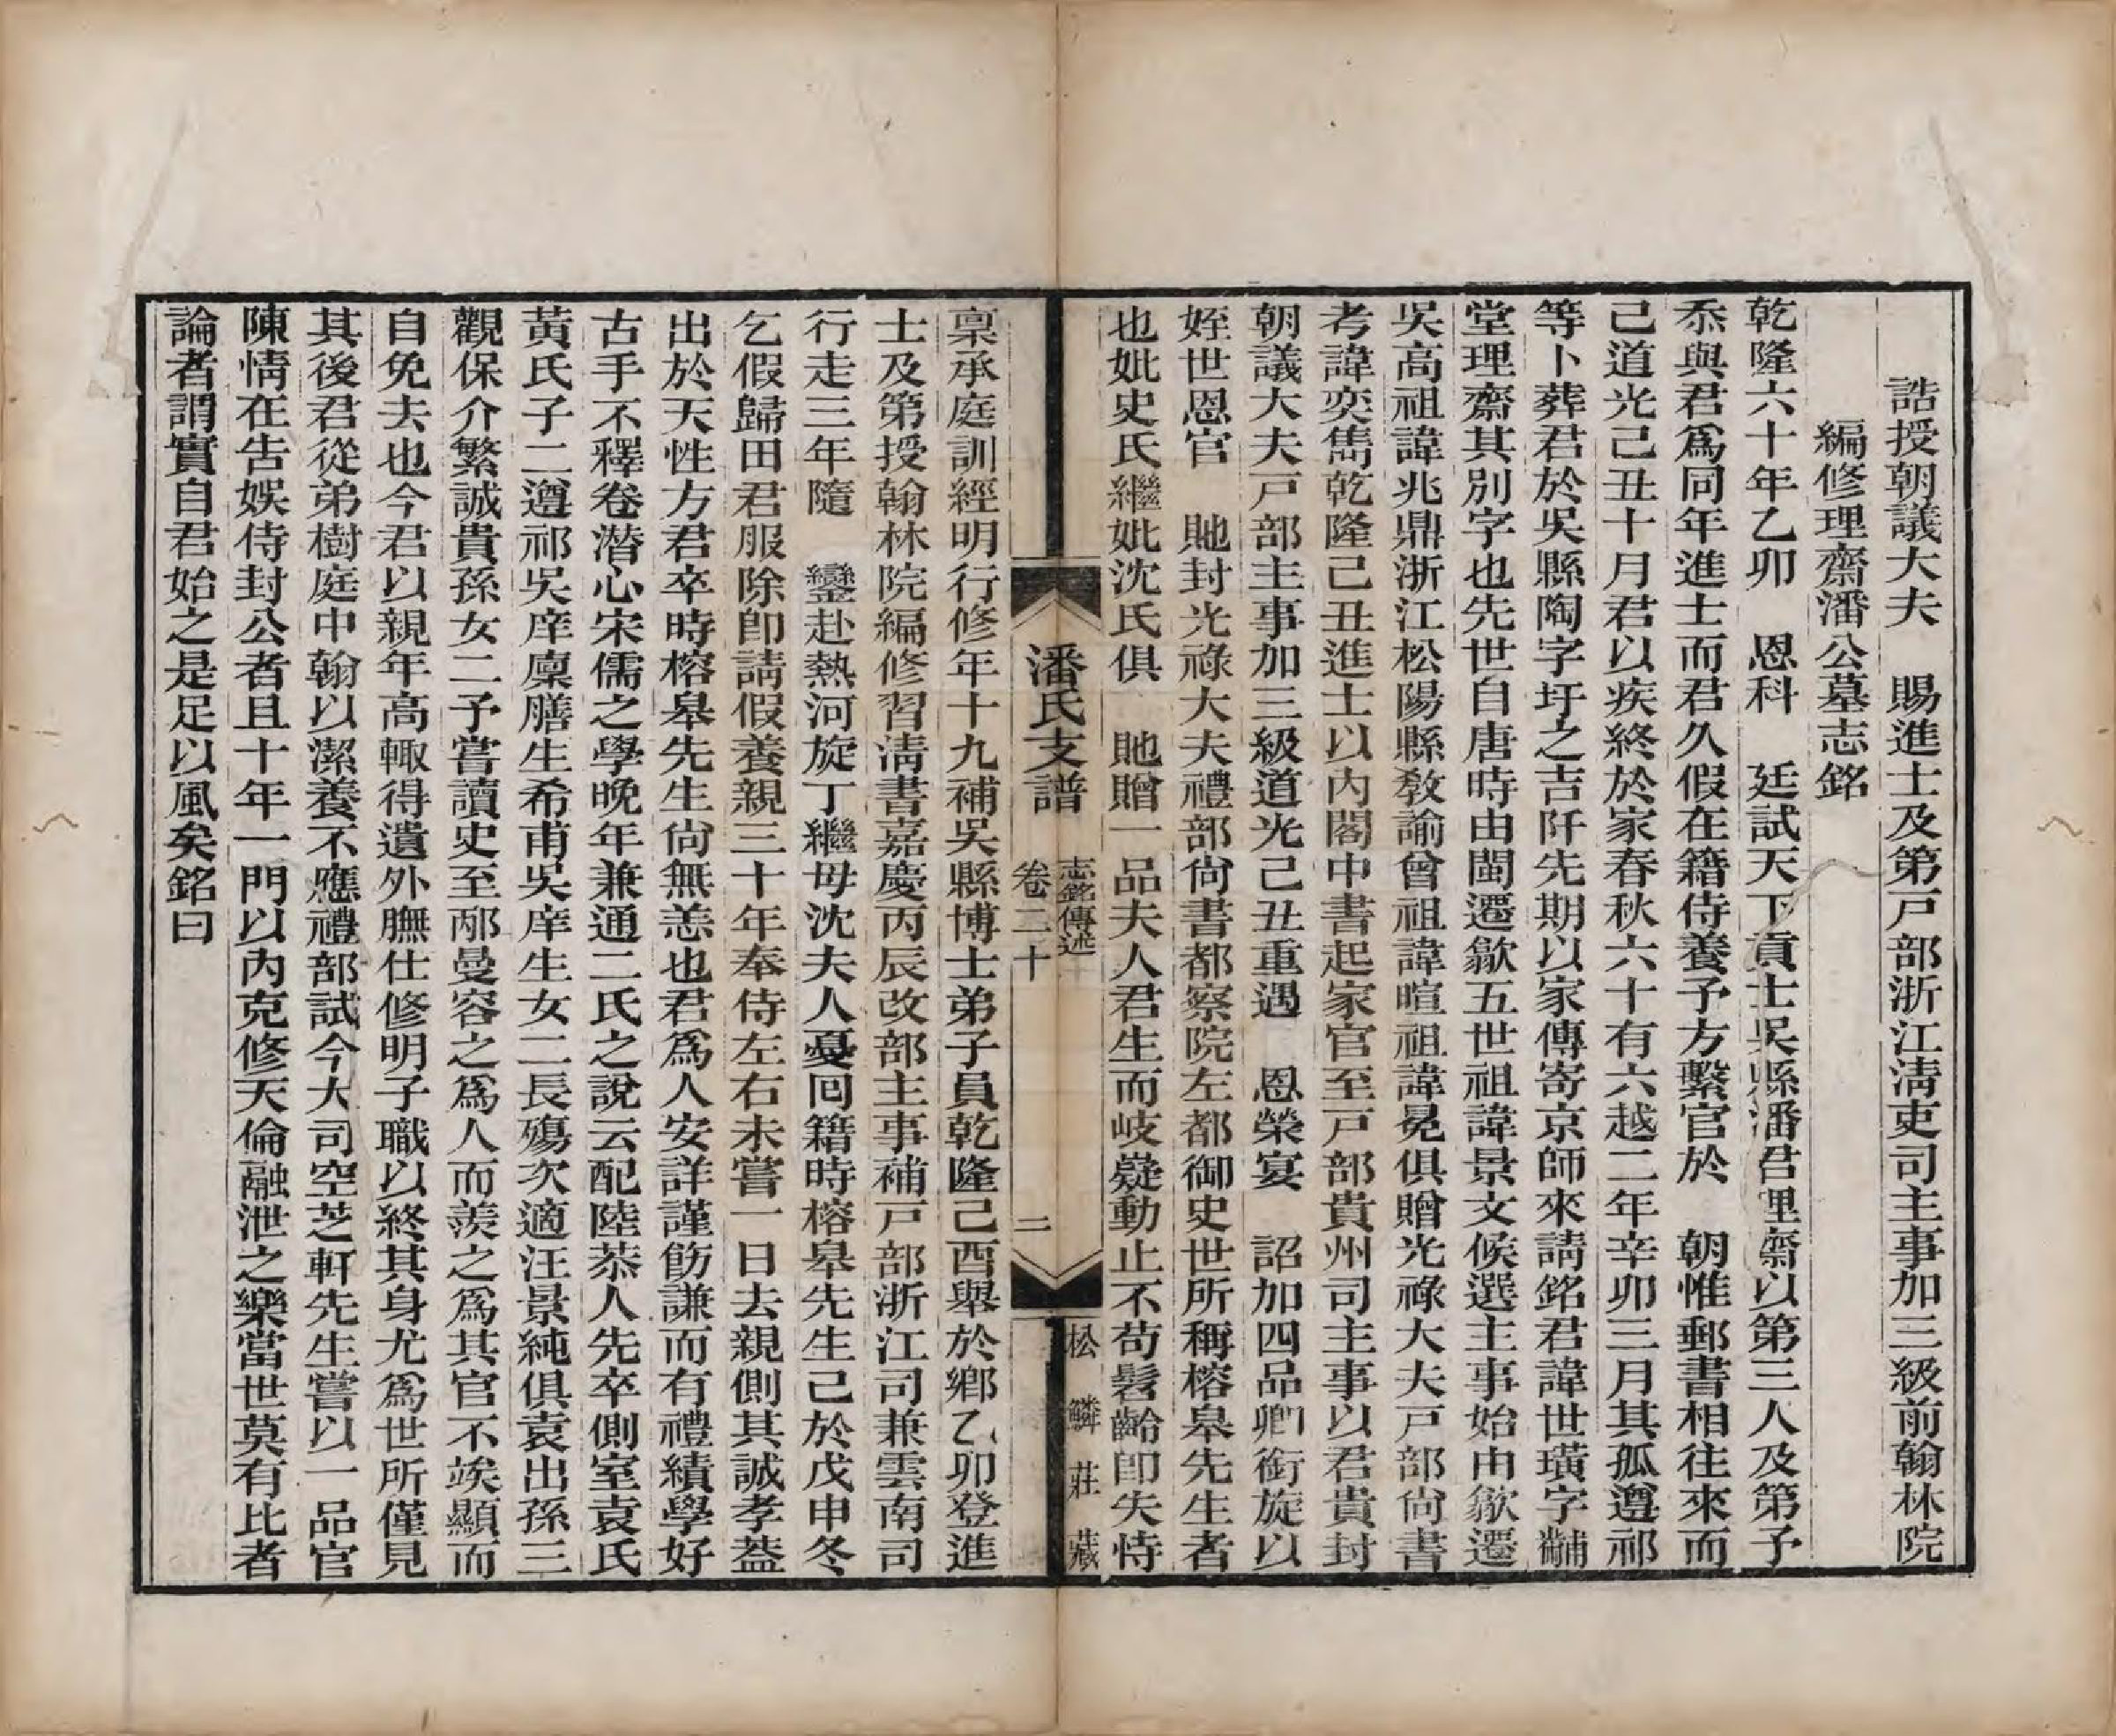 誥授朝議大夫　賜進士及第戸部浙江淸吏司主事加三級前翰林院
編修理齋潘公墓志銘
乾隆六十年乙卯　恩科　廷試天下貢士吳縣潘君理齋以第三人及第予
忝與君爲同年進士而君久假在籍侍養予方繫官於　朝惟郵書相往來而
己道光己丑十月君以疾終於家春秋六十有六越二年辛卯三月其孤遵祁
等卜葬君於吳縣陶字圩之吉阡先期以家傳寄京師來請銘君諱世璜字黼
堂理齋其別字也先世自唐時由閩遷歙五世祖諱景文候選主事始由歙遷
吳高祖諱兆鼎浙江松陽縣敎諭曾祖諱暄祖諱冕俱贈光祿大夫戸部尙書
考諱奕雋乾隆己丑進士以內閣中書起家官至戸部貴州司主事以君貴封
朝議大夫戸部主事加三級道光己丑重遇　恩榮宴　詔加四品卿銜旋以
姪世恩官　貤封光祿大夫禮部尙書都察院左都御史世所稱榕皋先生者
也妣史氏繼妣沈氏俱　貤贈一品夫人君生而岐嶷動止不苟髫齡卽失恃
潘氏支譜
志銘傳述
卷二十
二
松鱗莊藏
稟承庭訓經明行修年十九補吳縣博士弟子員乾隆己酉舉於鄉乙卯登進
士及第授翰林院編修習淸書嘉慶丙辰改部主事補戸部浙江司兼雲南司
行走三年隨　鑾赴熱河旋丁繼母沈夫人憂囘籍時榕皋先生己於戊申冬
乞假歸田君服除卽請假養親三十年奉侍左右未嘗一日去親側其誠孝葢
出於天性方君卒時榕皋先生尙無恙也君爲人安詳謹飭謙而有禮績學好
古手不釋卷潛心宋儒之學晚年兼通二氏之說云配陸恭人先卒側室袁氏
黃氏子二遵祁吳庠廩膳生希甫吳庠生女二長殤次適汪景純俱袁出孫三
觀保介繁誠貴孫女二予嘗讀史至邴曼容之爲人而羨之爲其官不竢顯而
自免去也今君以親年高輒得遺外膴仕修明子職以終其身尤爲世所僅見
其後君從弟樹庭中翰以潔養不應禮部試今大司空芝軒先生嘗以一品官
陳情在告娛侍封公者且十年一門以內克修天倫融泄之樂當世莫有比者
論者謂實自君始之是足以風矣銘曰